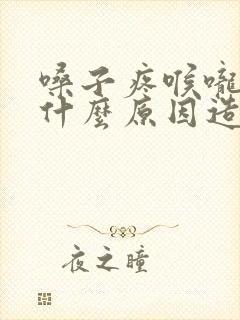 嗓子疼喉嚨
什麼原因造
夜之瞳